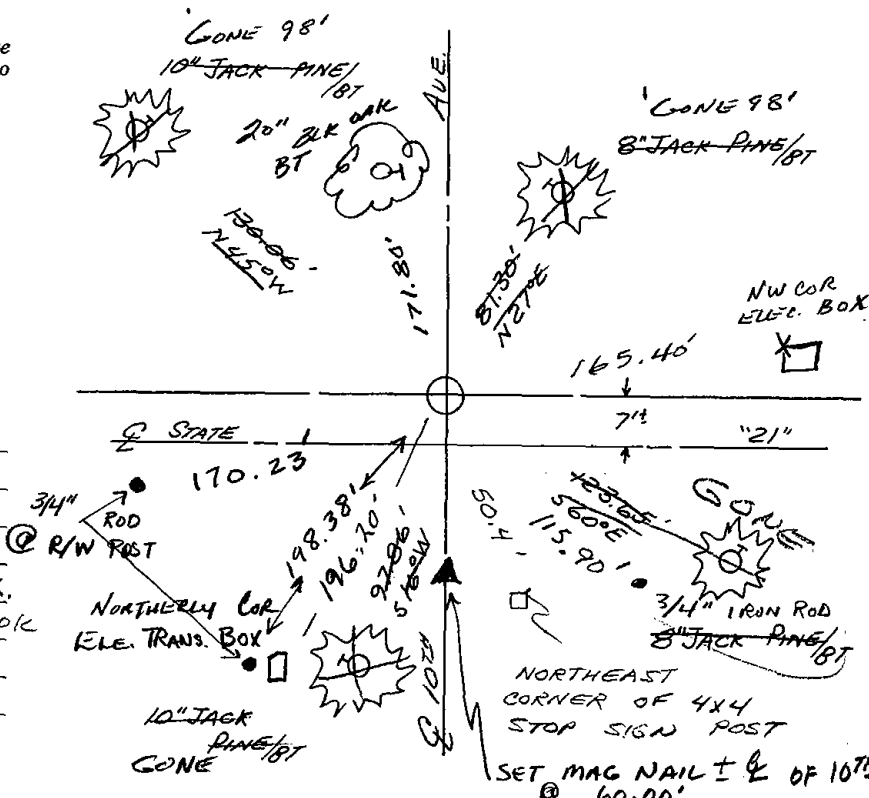 'GONE 98'
10" JACK PINE/BT
20" BLK OAK
BT
AVE.
'GONE 98'
8" JACK PINE/BT
130.06
N45°W
171.8'
81.30'
N27°E
NW COR
ELEC. BOX
165.40'
7'±
℄ STATE
"21"
170.23'
3/4"
ROD
@ R/W POST
198.38'
196.20'
S 16°W
50.4
123.65
S60°E
115.90'
GONE
3/4" IRON ROD
8" JACK PINE/BT
NORTHERLY COR
ELE. TRANS. BOX
10" JACK
PINE/BT
GONE
℄ 10TH
NORTHEAST
CORNER OF 4X4
STOP SIGN POST
SET MAG NAIL ± ℄ OF 10TH
@ 60.00'